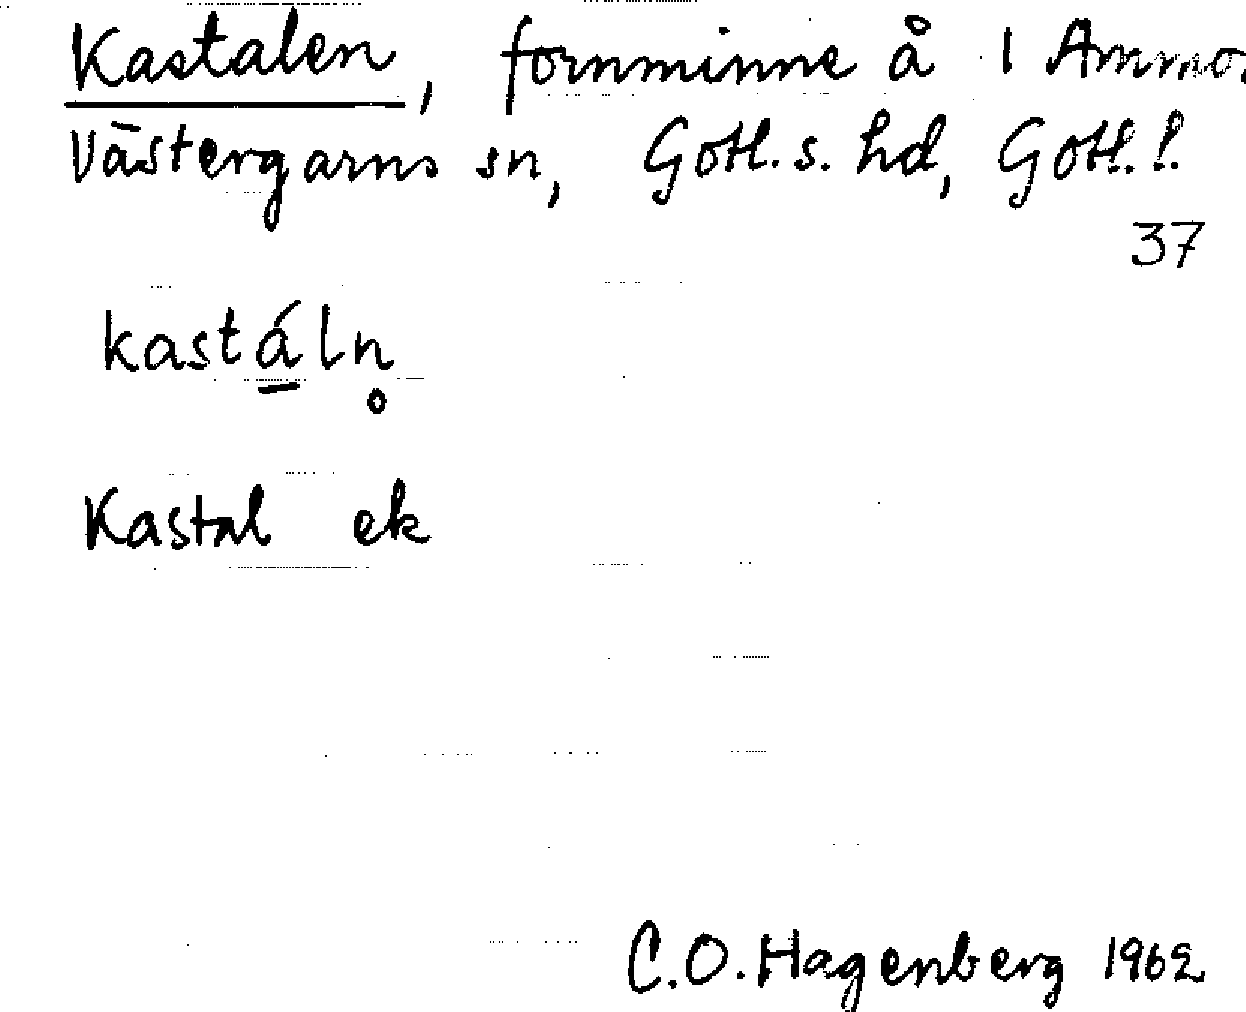 Kastalen, fornminne å 1 Ammo.
Västergarns sn, Gotl. s. hd, Gotl. l.
37
kastáln̥
Kastal ek
C.O. Hagenberg 1962